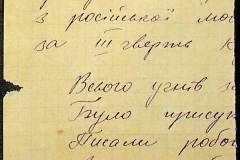 з російської мо
за III чверть к
Всього учнів з
Було присут
Писали робо